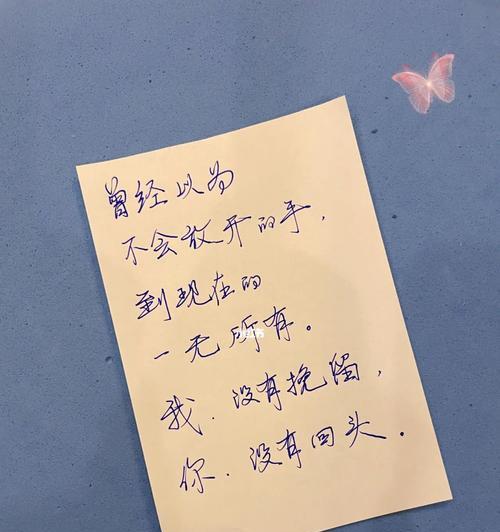 曾经以为
不会放开的手，
到现在的
一无所有。
我.没有挽留，
你.没有回头.